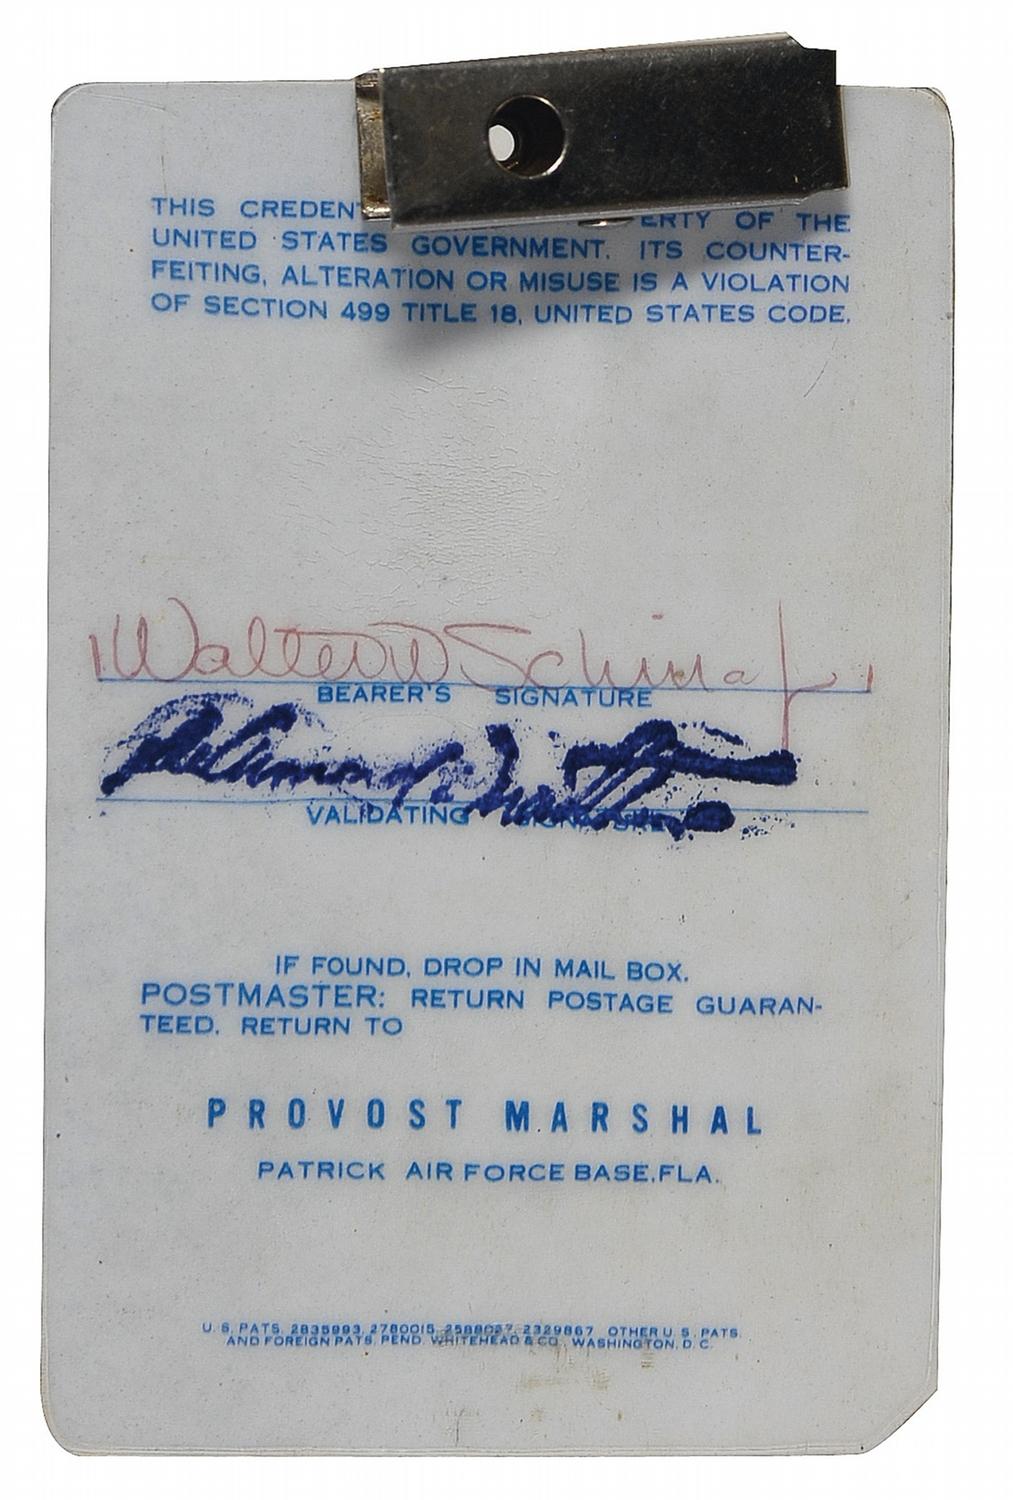 THIS CREDEN ERTY OF THE
UNITED STATES GOVERNMENT. ITS COUNTER-
FEITING, ALTERATION OR MISUSE IS A VIOLATION
OF SECTION 499 TITLE 18, UNITED STATES CODE.
Walter W Schirra Jr
BEARER'S SIGNATURE
VALIDATING SIGNATURE
IF FOUND, DROP IN MAIL BOX.
POSTMASTER: RETURN POSTAGE GUARAN-
TEED. RETURN TO
PROVOST MARSHAL
PATRICK AIR FORCE BASE, FLA.
U. S. PATS. 2835993, 2780015, 2588067, 2329867 OTHER U. S. PATS.
AND FOREIGN PATS. PEND. WHITEHEAD & CO., WASHINGTON, D. C.